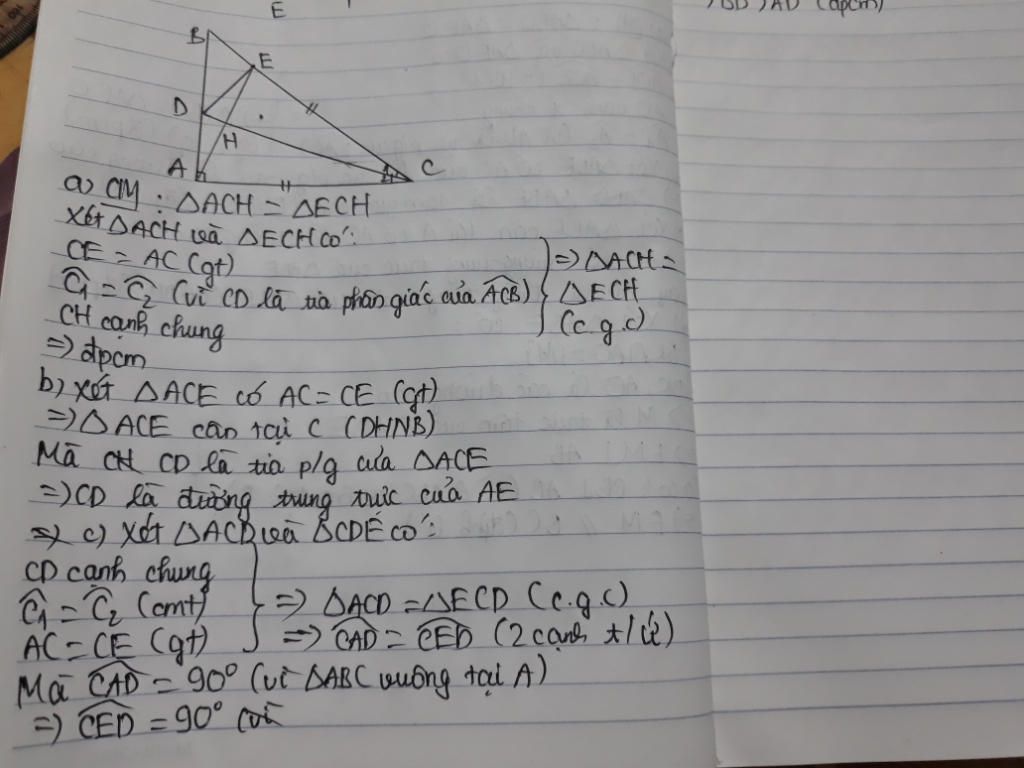 E
, BD > AD (đpcm)
B
E
D
H
A
C
a) CM : △ACH = △ECH
Xét △ACH và △ECH có:
CE = AC (gt)
Ĉ1 = Ĉ2 (vì CD là tia phân giác của ACB)
CH cạnh chung
=> △ACH =
△ECH
(c.g.c)
=> đpcm
b) Xét △ACE có AC = CE (gt)
=> △ACE cân tại C (DHNB)
Mà CH CD là tia p/g của △ACE
=> CD là đường trung trực của AE
=> c) Xét △ACD và △CDE có:
CD cạnh chung
Ĉ1 = Ĉ2 (cmt)
AC = CE (gt)
=> △ACD = △ECD (c.g.c)
=> CAD = CED (2 cạnh t/ứ)
Mà CAD = 90° (vì △ABC vuông tại A)
=> CED = 90° (vì